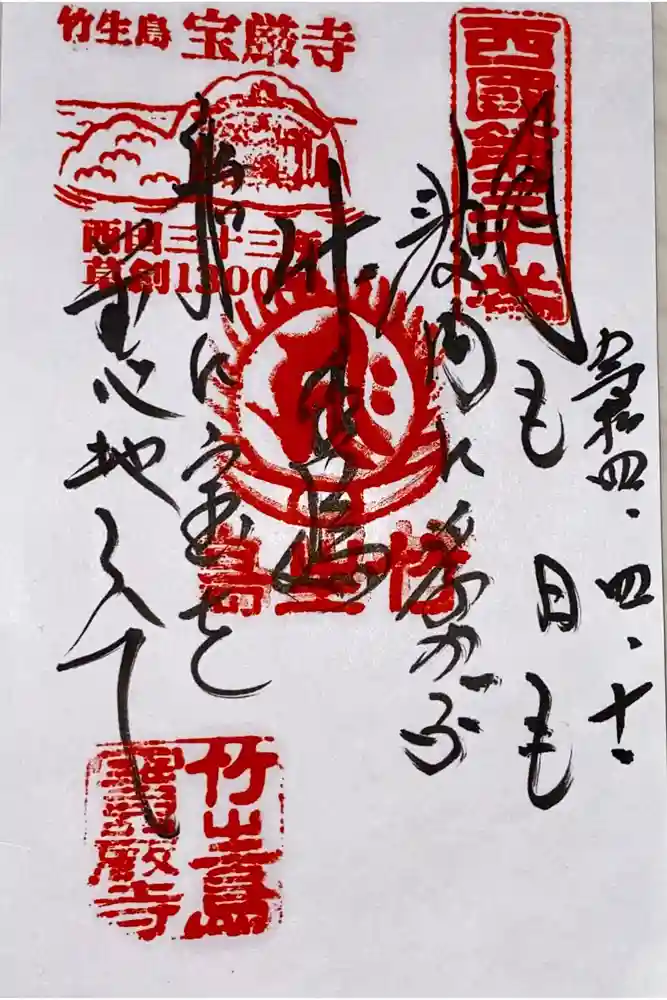 竹生島 宝厳寺
西国三十三所
草創1300年
西國第三十番
令和四.四.十一
月も日も
波間に浮かぶ
竹生島
船に宝を
積む心地して
竹生島
竹生島
寶厳寺